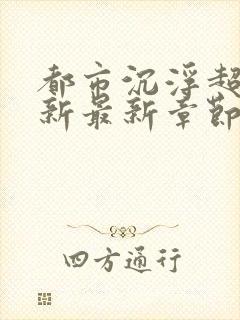 都市沉浮超
新最新章節
四方通行